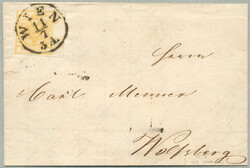 WIEN
11/7
5 A.
Herrn
Carl Menner
Wolfsberg